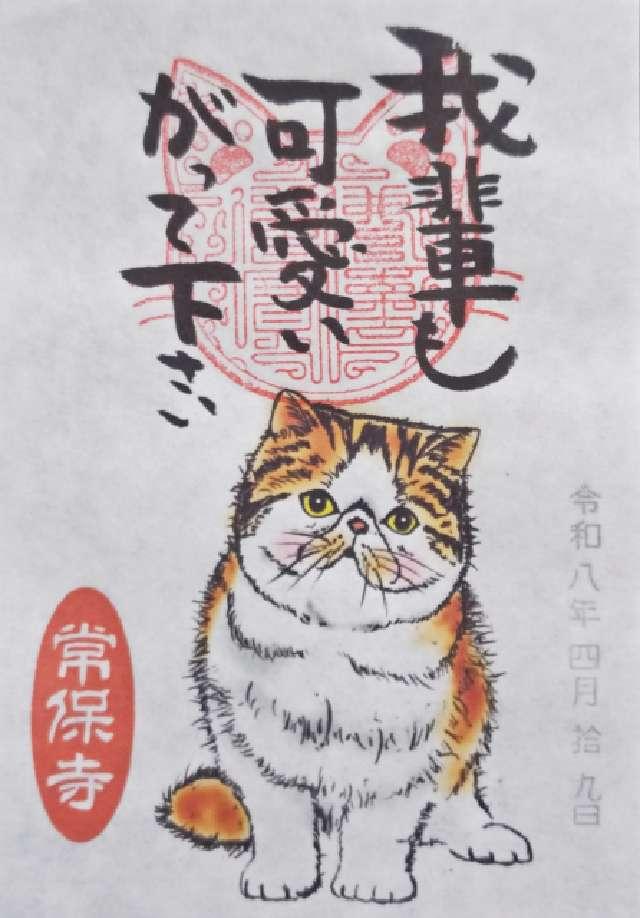 我輩も
可愛い
がって下さい
令和八年四月拾九日
常保寺